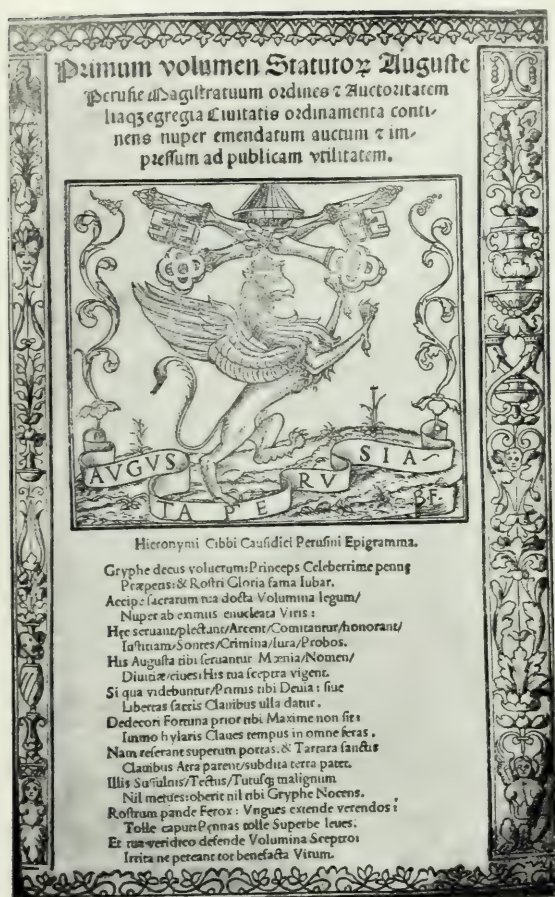 Primum volumen Statutoꝝ Auguſte
Peruſie Magiſtratuum ordines ⁊ Auctoritatem
liaqꝫ egregia Ciuitatis ordinamenta conti⸗
nens nuper emendatum auctum ⁊ im⸗
preſſum ad publicam vtilitatem.
AVGVS
TA PE
RV
SIA
B.F.
Hieronymi Cibbi Cauſidici Peruſini Epigramma.
Gryphe decus volucrum: Princeps Celeberrime pennę
Præpens: & Roſtri Gloria fama Iubar.
Accipe ſacrarum tua docta Volumina legum/
Nuper ab eximiis enucleata Viris:
Hęc seruant/plectunt/Arcent/Comitantur/honorant/
Iuſtitiam/Sontes/Crimina/Iura/Probos.
His Auguſta tibi ſeruantur Mœnia/Nomen/
Diuitiæ/ciues: His tua ſceptra vigent.
Si qua videbuntur/Primus tibi Deuia: ſiue
Libertas ſacris Clauibus vlla datur.
Dedecori Fortuna prior tibi Maxime non ſit:
Immo hylaris Claues tempus in omne feras.
Nam reſerant superum portas. & Tartara ſanctis
Clauibus Atra parent/subdita terra patet.
Illis Tectus/Tutuſqꝫ malignum
Nil metues: oberit nil tibi Gryphe Nocens.
Roſtrum pande Ferox: Vngues extende verendos:
Tolle caput: Pennas tolle Superbe leues.
Et tua veridico defende Volumina Sceptro:
Irrita ne pereant tot benefacta Virum.